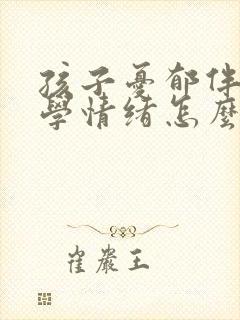 孩子憂郁伴
學情緒怎麼
崔巖王